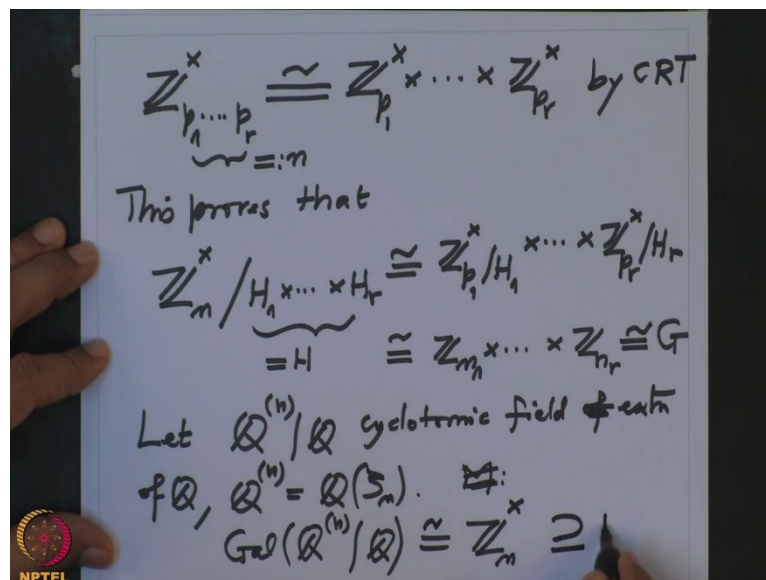 ℤ_{p_1⋯p_r}^× ≅ ℤ_{p_1}^× × ⋯ × ℤ_{p_r}^× by CRT
=: n
This proves that
ℤ_n^× / H_1 × ⋯ × H_r ≅ ℤ_{p_1}^×/H_1 × ⋯ × ℤ_{p_r}^×/H_r
= H ≅ ℤ_{n_1} × ⋯ × ℤ_{n_r} ≅ G
Let ℚ^{(n)}/ℚ cyclotomic field extn
of ℚ, ℚ^{(n)} = ℚ(ζ_n).
Gal(ℚ^{(n)}/ℚ) ≅ ℤ_n^× ⊇
NPTEL